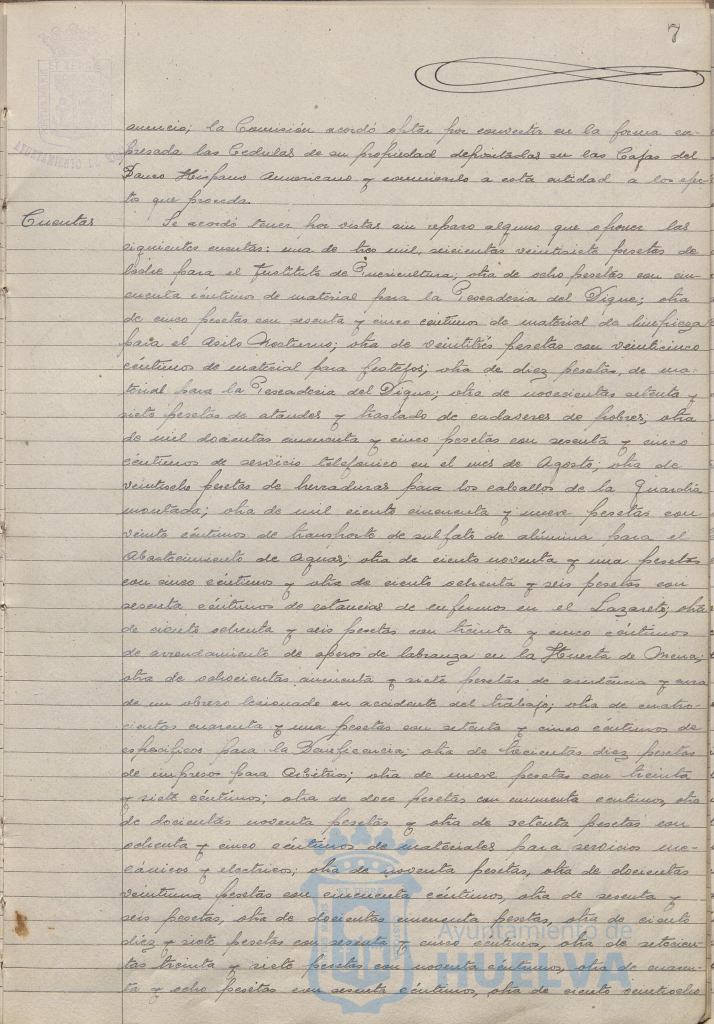 7
anuncio; la Comisión acordó optar por convertir en la forma ex-
presada las Cedulas de su propiedad depositadas en las Cajas del
Banco Hispano Americano y comunicarlo a esta entidad a los efec-
tos que proceda.
Cuentas
Se acordó tener por vistas sin reparo alguno que oponer las
siguientes cuentas: una de tres mil, seiscientas veintisiete pesetas de
leche para el Instituto de Puericultura; otra de ocho pesetas con cin-
cuenta céntimos de material para la Pescadería del Dique; otra
de cinco pesetas con sesenta y cinco céntimos de material de limpieza
para el Asilo Nocturno; otra de veintitrés pesetas con veinticinco
céntimos de material para festejos; otra de diez pesetas, de ma-
terial para la Pescadería del Dique; otra de novecientas setenta y
siete pesetas de ataudes y traslado de cadáveres de pobres; otra
de mil doscientas cincuenta y cinco pesetas con sesenta y cinco
céntimos de servicio telefonico en el mes de Agosto; otra de
veintiocho pesetas de herraduras para los caballos de la Guardia
montada; otra de mil ciento cincuenta y nueve pesetas con
veinte céntimos de transporte de sulfato de alúmina para el
Abastecimiento de Aguas; otra de ciento noventa y una pesetas
con cinco céntimos y otra de ciento ochenta y seis pesetas con
sesenta céntimos de estancias de enfermos en el Lazareto; otra
de ciento ochenta y seis pesetas con treinta y cinco céntimos
de arrendamiento de aperos de labranza en la Huerta de Mena;
otra de ochocientas cincuenta y siete pesetas de asistencia y cura
de un obrero lesionado en accidente del trabajo; otra de cuatro-
cientas cuarenta y una pesetas con setenta y cinco céntimos de
especificos para la Beneficencia; otra de trecientas diez pesetas
de impresos para Arbitrios; otra de nueve pesetas con treinta
y siete céntimos; otra de doce pesetas con cincuenta centimos, otra
de doscientas noventa pesetas y otra de setenta pesetas con
ochenta y cinco céntimos de materiales para servicios me-
cánicos y electricos; otra de noventa pesetas, otra de doscientas
veintiuna pesetas con cincuenta céntimos, otra de sesenta y
seis pesetas, otra de doscientas cincuenta pesetas, otra de ciento
diez y siete pesetas con sesenta y cinco céntimos, otra de setecien-
tas treinta y siete pesetas con noventa céntimos, otra de cuaren-
ta y ocho pesetas con sesenta céntimos, otra de ciento veintiocho
Ayuntamiento de
HUELVA